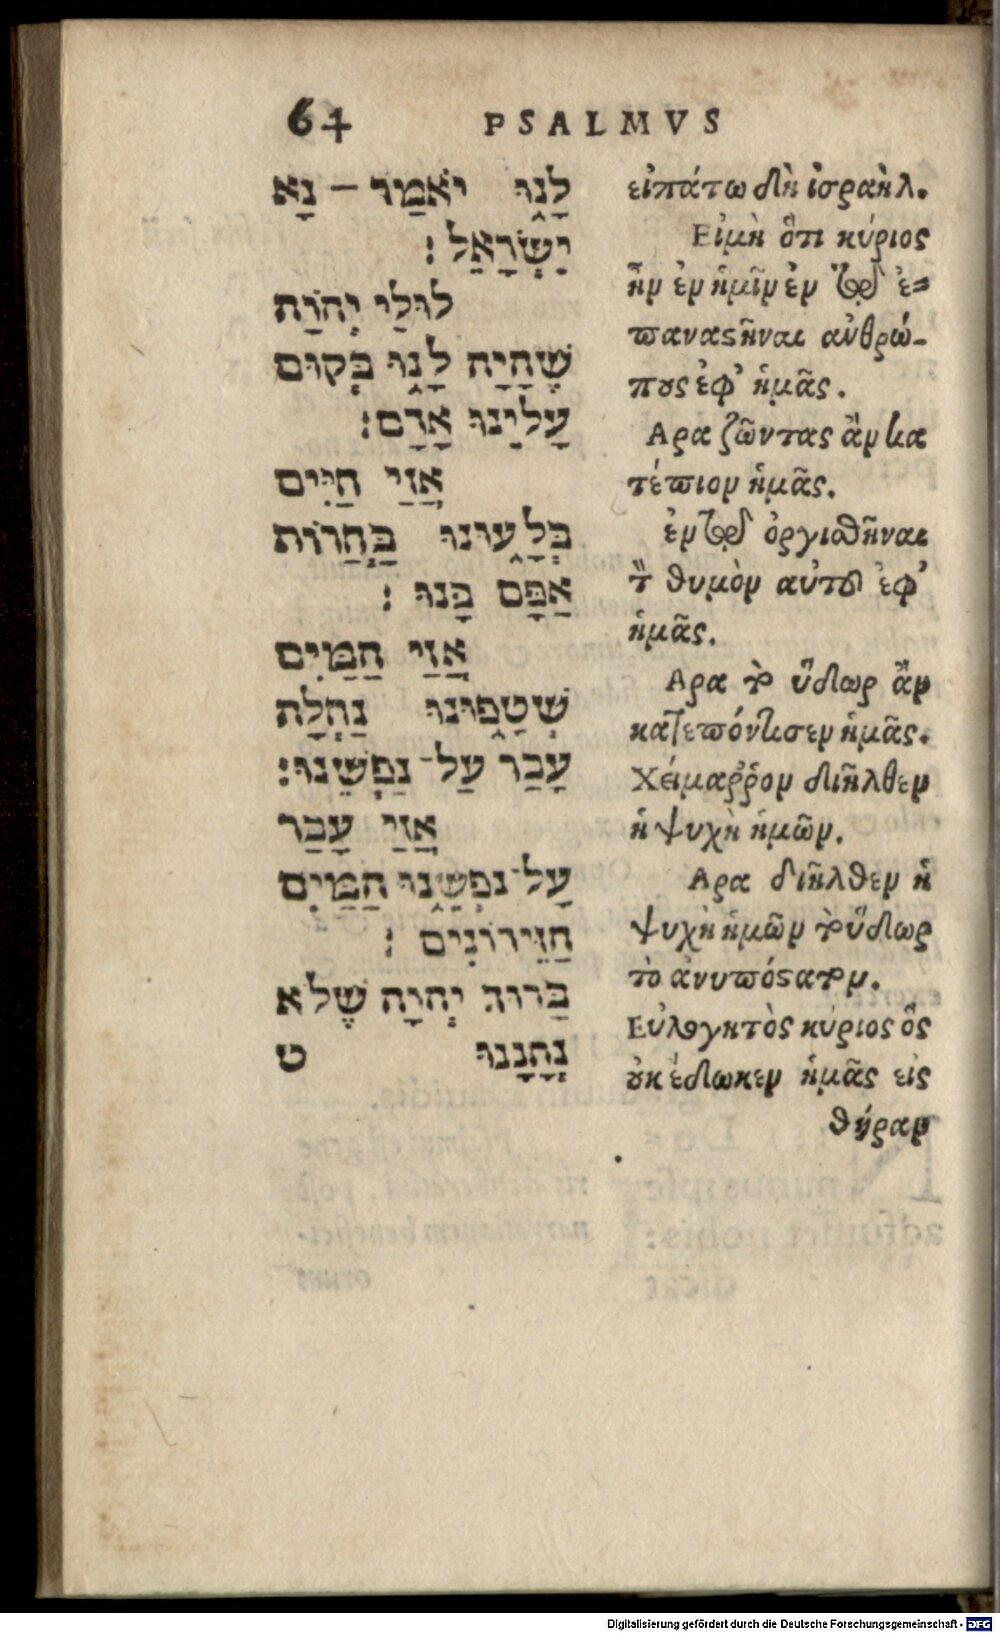 64 PSALMVS
לָנוּ יֹאמַר־נָא
יִשְׂרָאֵל׃
לוּלֵי יְהֹוָה
שֶׁהָיָה לָנוּ בְּקוּם
עָלֵינוּ אָדָם׃
אֲזַי חַיִּים
בְּלָעוּנוּ בַּחֲרוֹת
אַפָּם בָּנוּ׃
אֲזַי הַמַּיִם
שְׁטָפוּנוּ נַחְלָה
עָבַר עַל־נַפְשֵׁנוּ׃
אֲזַי עָבַר
עַל־נַפְשֵׁנוּ הַמַּיִם
הַזֵּידוֹנִים׃
בָּרוּךְ יְהֹוָה שֶׁלֹּא
נְתָנָנוּ ט
εἰπάτω δὴ ἰσραὴλ.
Εἰμὴ ὅτι κύριος
ἦν ἐν ἡμῖν ἐν τῷ ἐ=
παναςῆναι ἀνθρώ-
πους ἐφ' ἡμᾶς.
Αρα ζῶντας ἂν κα
τέπιον ἡμᾶς.
ἐν τῷ ὀργισθῆναι
τὸν θυμὸν αὐτοῦ ἐφ'
ἡμᾶς.
Αρα τὸ ὕδωρ ἂν
κατεπόντισεν ἡμᾶς.
Χείμαῤῥον διῆλθεν
ἡ ψυχὴ ἡμῶν.
Αρα διῆλθεν ἡ
ψυχὴ ἡμῶν τὸ ὕδωρ
τὸ ἀνυπόςατον.
Εὐλογητὸς κύριος ὃς
οὐκ ἔδωκεν ἡμᾶς εἰς
θήραν
Digitalisierung gefördert durch die Deutsche Forschungsgemeinschaft - DFG